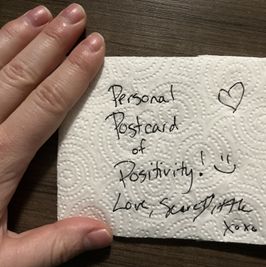 Personal
Postcard
of
Positivity!
Love,
xoxo